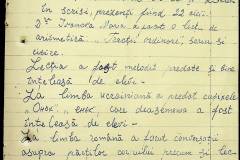 în scris, prezenți fiind 22 elevi.
2º Ivanoka Nova a ținut o lecție de
aritmetică, "Fracții ordinare", scris și
citire.
Lecția a fost metodic predate și bine
înțeleasă de elevi.-
La limba ucraineană a predat
"Онок", "енок", care deasemenea a fost
înțeleasă de elevi-
La limba română a făcut conversații
asupra părților corpului precum și